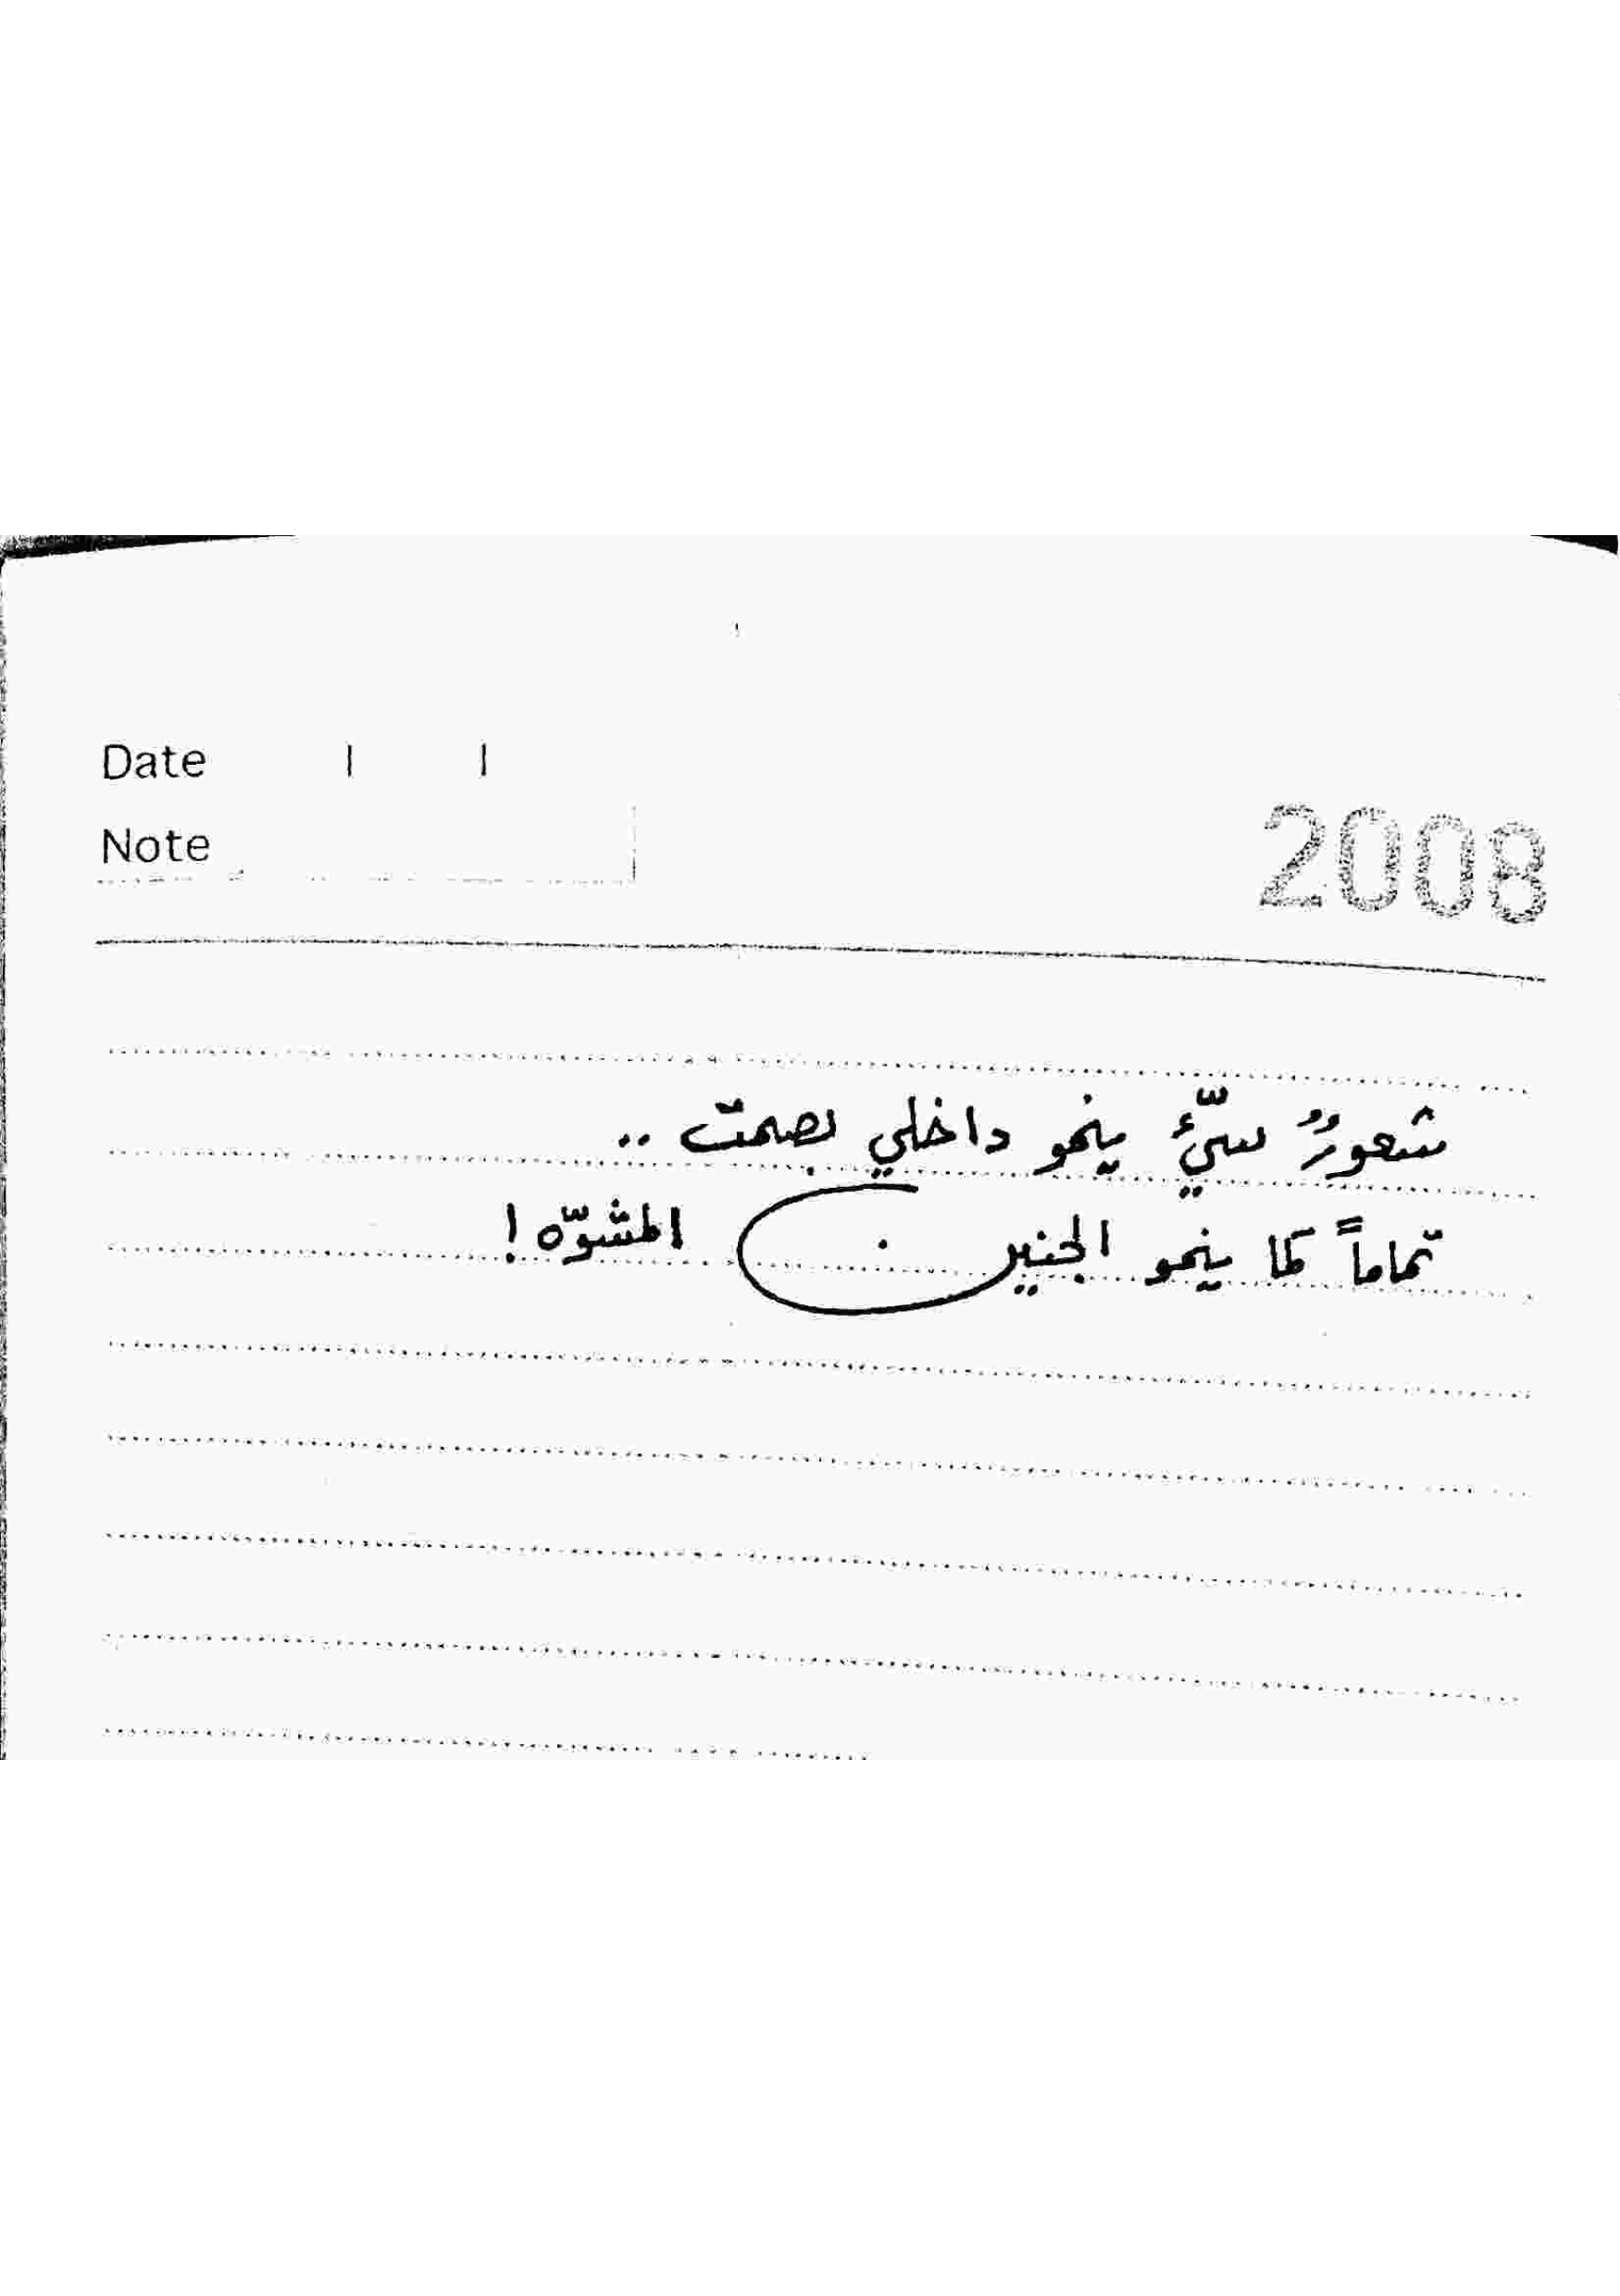 Date / /
Note
2008
شعورٌ سيّئٌ ينمو داخلي بصمت ..
تماماً كما ينمو الجنين المشوّه !